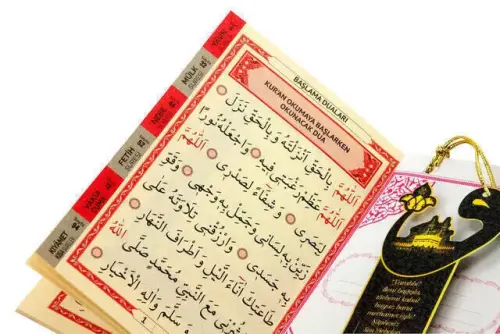 MÜLK
SURESİ
NEBE
FETİH
SURESİ
VAKIA
KIYAMET
BAŞLAMA DUALARI
KUR'AN OKUMAYA BAŞLARKEN
OKUNACAK DUA
اَللّٰهُمَّ بِالْحَقِّ اَنْزَلْتَهُ وَ بِالْحَقِّ نَزَلَ
اَللّٰهُمَّ عَظِّمْ رَغْبَتِى فِيهِ وَاجْعَلْهُ نُورًا
لِبَصَرِى وَ شِفَاءً لِصَدْرِى اَللّٰهُمَّ
زَيِّنْ بِهِ لِسَانِى وَجَمِّلْ بِهِ وَجْهِى وَقَوِّ
بِهِ جَسَدِى وَارْزُقْنِى تِلَاوَتَهُ عَلَى
طَاعَتِكَ اٰنَاءَ الَّيْلِ وَ اَطْرَافَ النَّهَارِ
مَعَ النَّبِىِّ مُحَمَّدٍ صَلَّى اللّٰهُ
وَ سَلَّمَ وَاٰلِهِ الْاَخْيَارِ